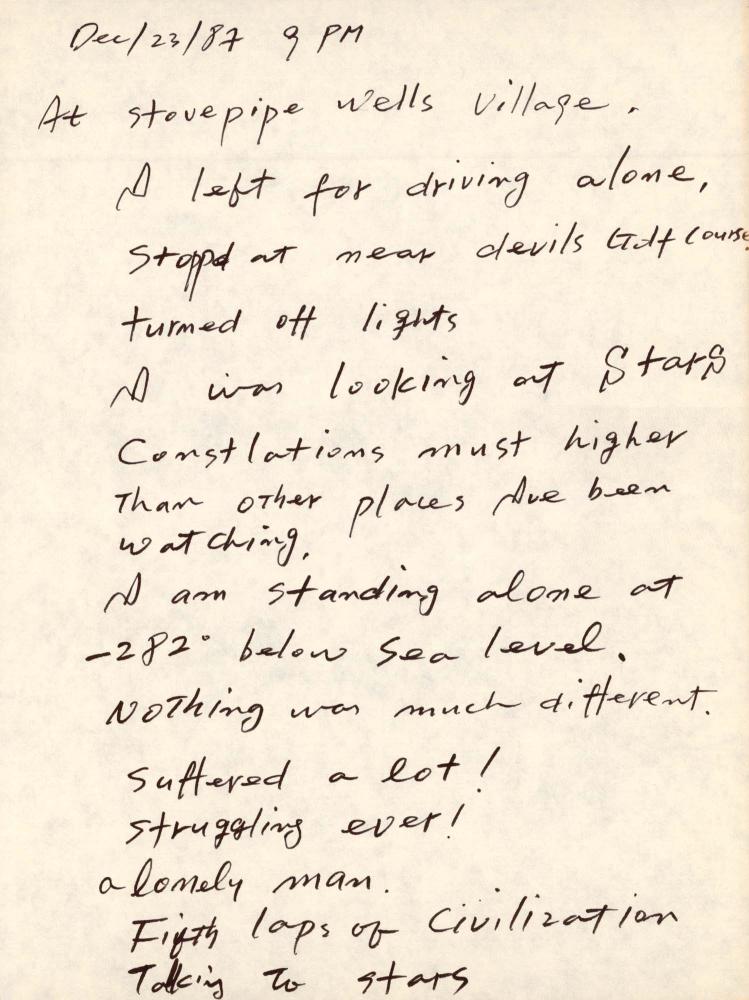 Dec/23/87 9 PM
At stovepipe wells village.
I left for driving alone,
Stoppd at near devils Golf Course.
turned off lights
I was looking at Stars
Constlations must higher
Than other places I've been
watching.
I am standing alone at
-282° below Sea level.
Nothing was much different.
Suffered a lot!
struggling ever!
a lonely man.
Fifth laps of Civilization
Talking To stars